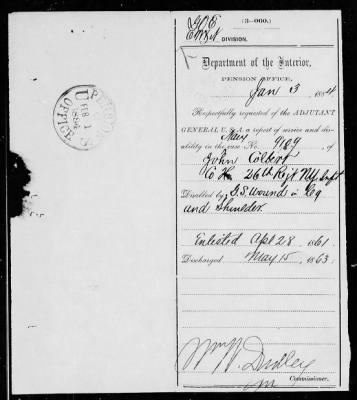 (3—000.)
DIVISION.
Department of the Interior,
PENSION OFFICE,
Jan 3, 1884
Respectfully requested of the ADJUTANT
GENERAL U. S. A. a report of service and dis-
ability in the case No. 9189, of
John Colbert
Co K 26th Regt NY Inft
Disabled by G.S. wound in leg
and shoulder.
Enlisted Apl 28, 1861
Discharged May 15, 1863.
Wm W. Dudley
Commissioner.
PENSION OFFICE
U S
FEB 1
1884